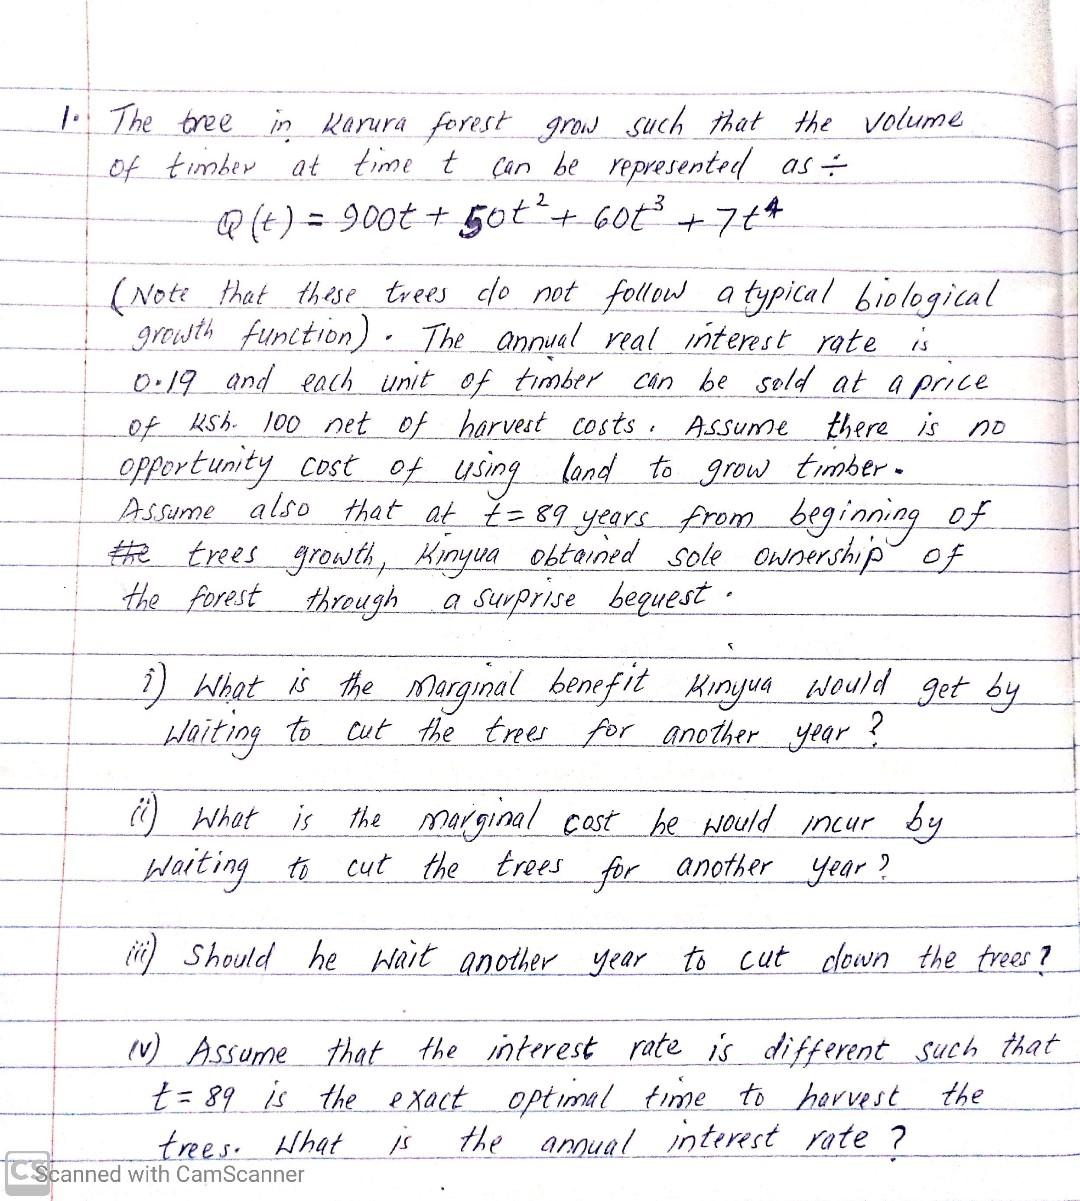 1. The tree in Karura forest grow such that the volume
of timber at time t can be represented as ÷
Q(t) = 900t + 50t² + 60t³ + 7t⁴
(Note that these trees do not follow a typical biological
growth function). The annual real interest rate is
0.19 and each unit of timber can be sold at a price
of Ksh. 100 net of harvest costs. Assume there is no
opportunity cost of using land to grow timber.
Assume also that at t = 89 years from beginning of
the trees growth, Kinyua obtained sole ownership of
the forest through a surprise bequest.
i) What is the marginal benefit Kinyua would get by
waiting to cut the trees for another year?
(ii) What is the marginal cost he would incur by
waiting to cut the trees for another year?
iii) Should he wait another year to cut down the trees?
(v) Assume that the interest rate is different such that
t = 89 is the exact optimal time to harvest the
trees. What is the annual interest rate?
CS Scanned with CamScanner